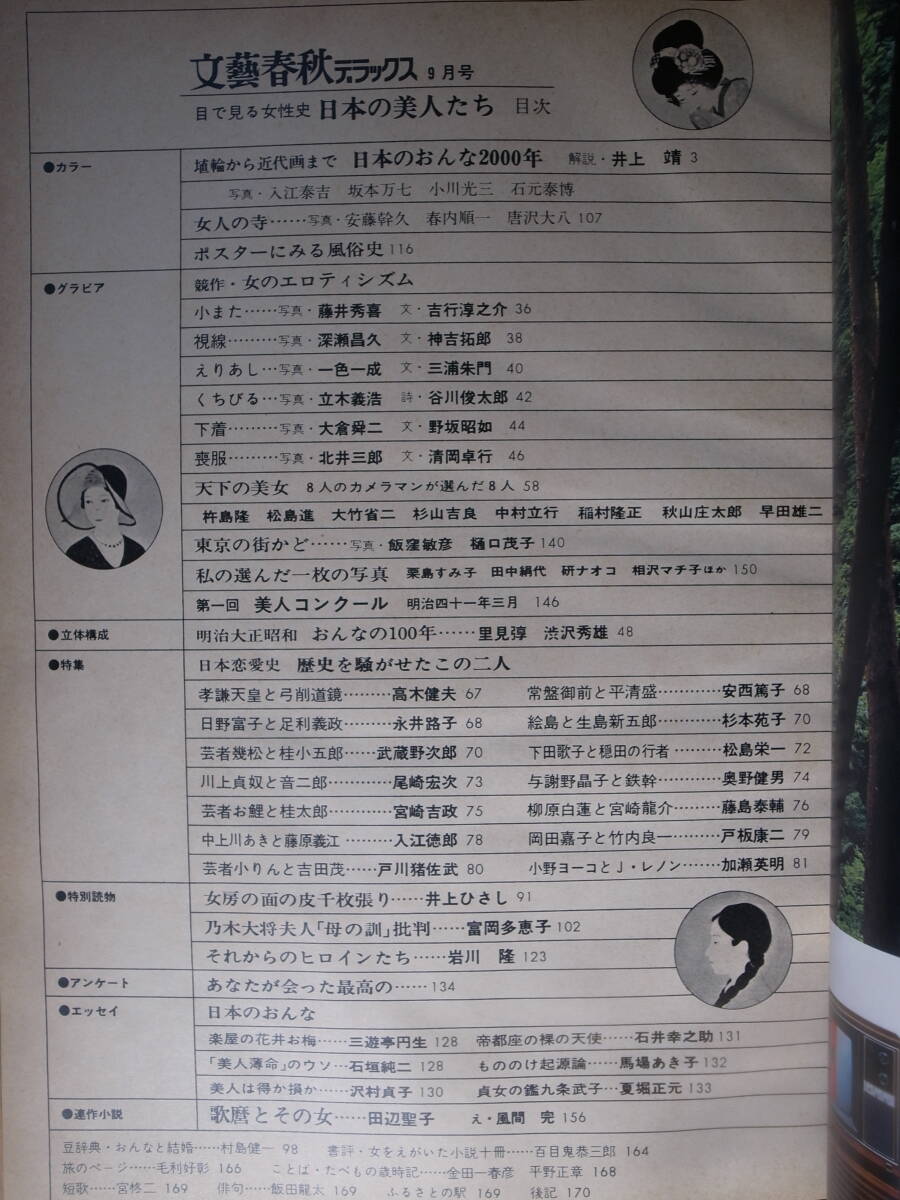 文藝春秋デラックス 9月号
目で見る女性史 日本の美人たち 目次
●カラー
埴輪から近代画まで 日本のおんな2000年 解説・井上 靖 3
写真・入江泰吉 坂本万七 小川光三 石元泰博
女人の寺……写真・安藤幹久 春内順一 唐沢大八 107
ポスターにみる風俗史 116
●グラビア
競作・女のエロティシズム
小また……写真・藤井秀喜 文・吉行淳之介 36
視線………写真・深瀬昌久 文・神吉拓郎 38
えりあし…写真・一色一成 文・三浦朱門 40
くちびる…写真・立木義浩 詩・谷川俊太郎 42
下着………写真・大倉舜二 文・野坂昭如 44
喪服………写真・北井三郎 文・清岡卓行 46
天下の美女 8人のカメラマンが選んだ8人 58
杵島隆 松島進 大竹省二 杉山吉良 中村立行 稲村隆正 秋山庄太郎 早田雄二
東京の街かど……写真・飯窪敏彦 樋口茂子 140
私の選んだ一枚の写真 栗島すみ子 田中絹代 研ナオコ 相沢マチ子ほか 150
第一回 美人コンクール 明治四十一年三月 146
●立体構成
明治大正昭和 おんなの100年……里見弴 渋沢秀雄 48
●特集
日本恋愛史 歴史を騒がせたこの二人
孝謙天皇と弓削道鏡………高木健夫 67 常盤御前と平清盛…………安西篤子 68
日野富子と足利義政………永井路子 68 絵島と生島新五郎…………杉本苑子 70
芸者幾松と桂小五郎……武蔵野次郎 70 下田歌子と穏田の行者………松島栄一 72
川上貞奴と音二郎…………尾崎宏次 73 与謝野晶子と鉄幹…………奥野健男 74
芸者お鯉と桂太郎…………宮崎吉政 75 柳原白蓮と宮崎龍介………藤島泰輔 76
中上川あきと藤原義江………入江徳郎 78 岡田嘉子と竹内良一………戸板康二 79
芸者小りんと吉田茂……戸川猪佐武 80 小野ヨーコとJ・レノン……加瀬英明 81
●特別読物
女房の面の皮千枚張り……井上ひさし 91
乃木大将夫人「母の訓」批判……富岡多恵子 102
それからのヒロインたち……岩川 隆 123
●アンケート
あなたが会った最高の……134
●エッセイ
日本のおんな
楽屋の花井お梅……三遊亭円生 128 帝都座の裸の天使……石井幸之助 131
「美人薄命」のウソ…石垣純二 128 もののけ起源論……馬場あき子 132
美人は得か損か……沢村貞子 130 貞女の鑑九条武子…夏堀正元 133
●連作小説
歌麿とその女……田辺聖子 え・風間 完 156
豆辞典・おんなと結婚……村島健一 98 書評・女をえがいた小説十冊……百目鬼恭三郎 164
旅のページ……毛利好彰 166 ことば・たべもの歳時記……金田一春彦 平野正章 168
短歌……宮柊二 169 俳句……飯田龍太 169 ふるさとの駅 169 後記 170